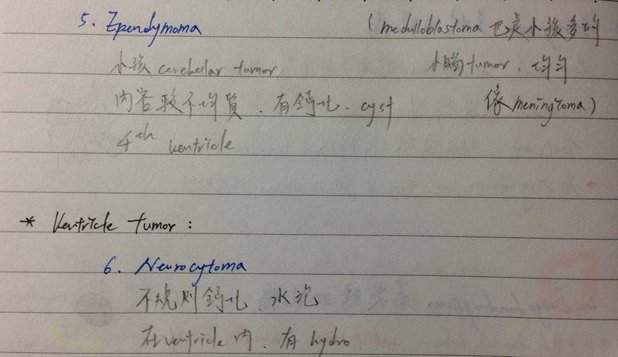 5. Ependymoma (medulloblastoma 也是小孩多的
小孩 cerebellar tumor 小腦 tumor. 均勻
內容較不均質、有鈣化、cyst 像 meningioma)
4th ventricle
* Ventricle tumor:
6. Neurocytoma
不規則鈣化、水泡
在 ventricle 內、有 hydro